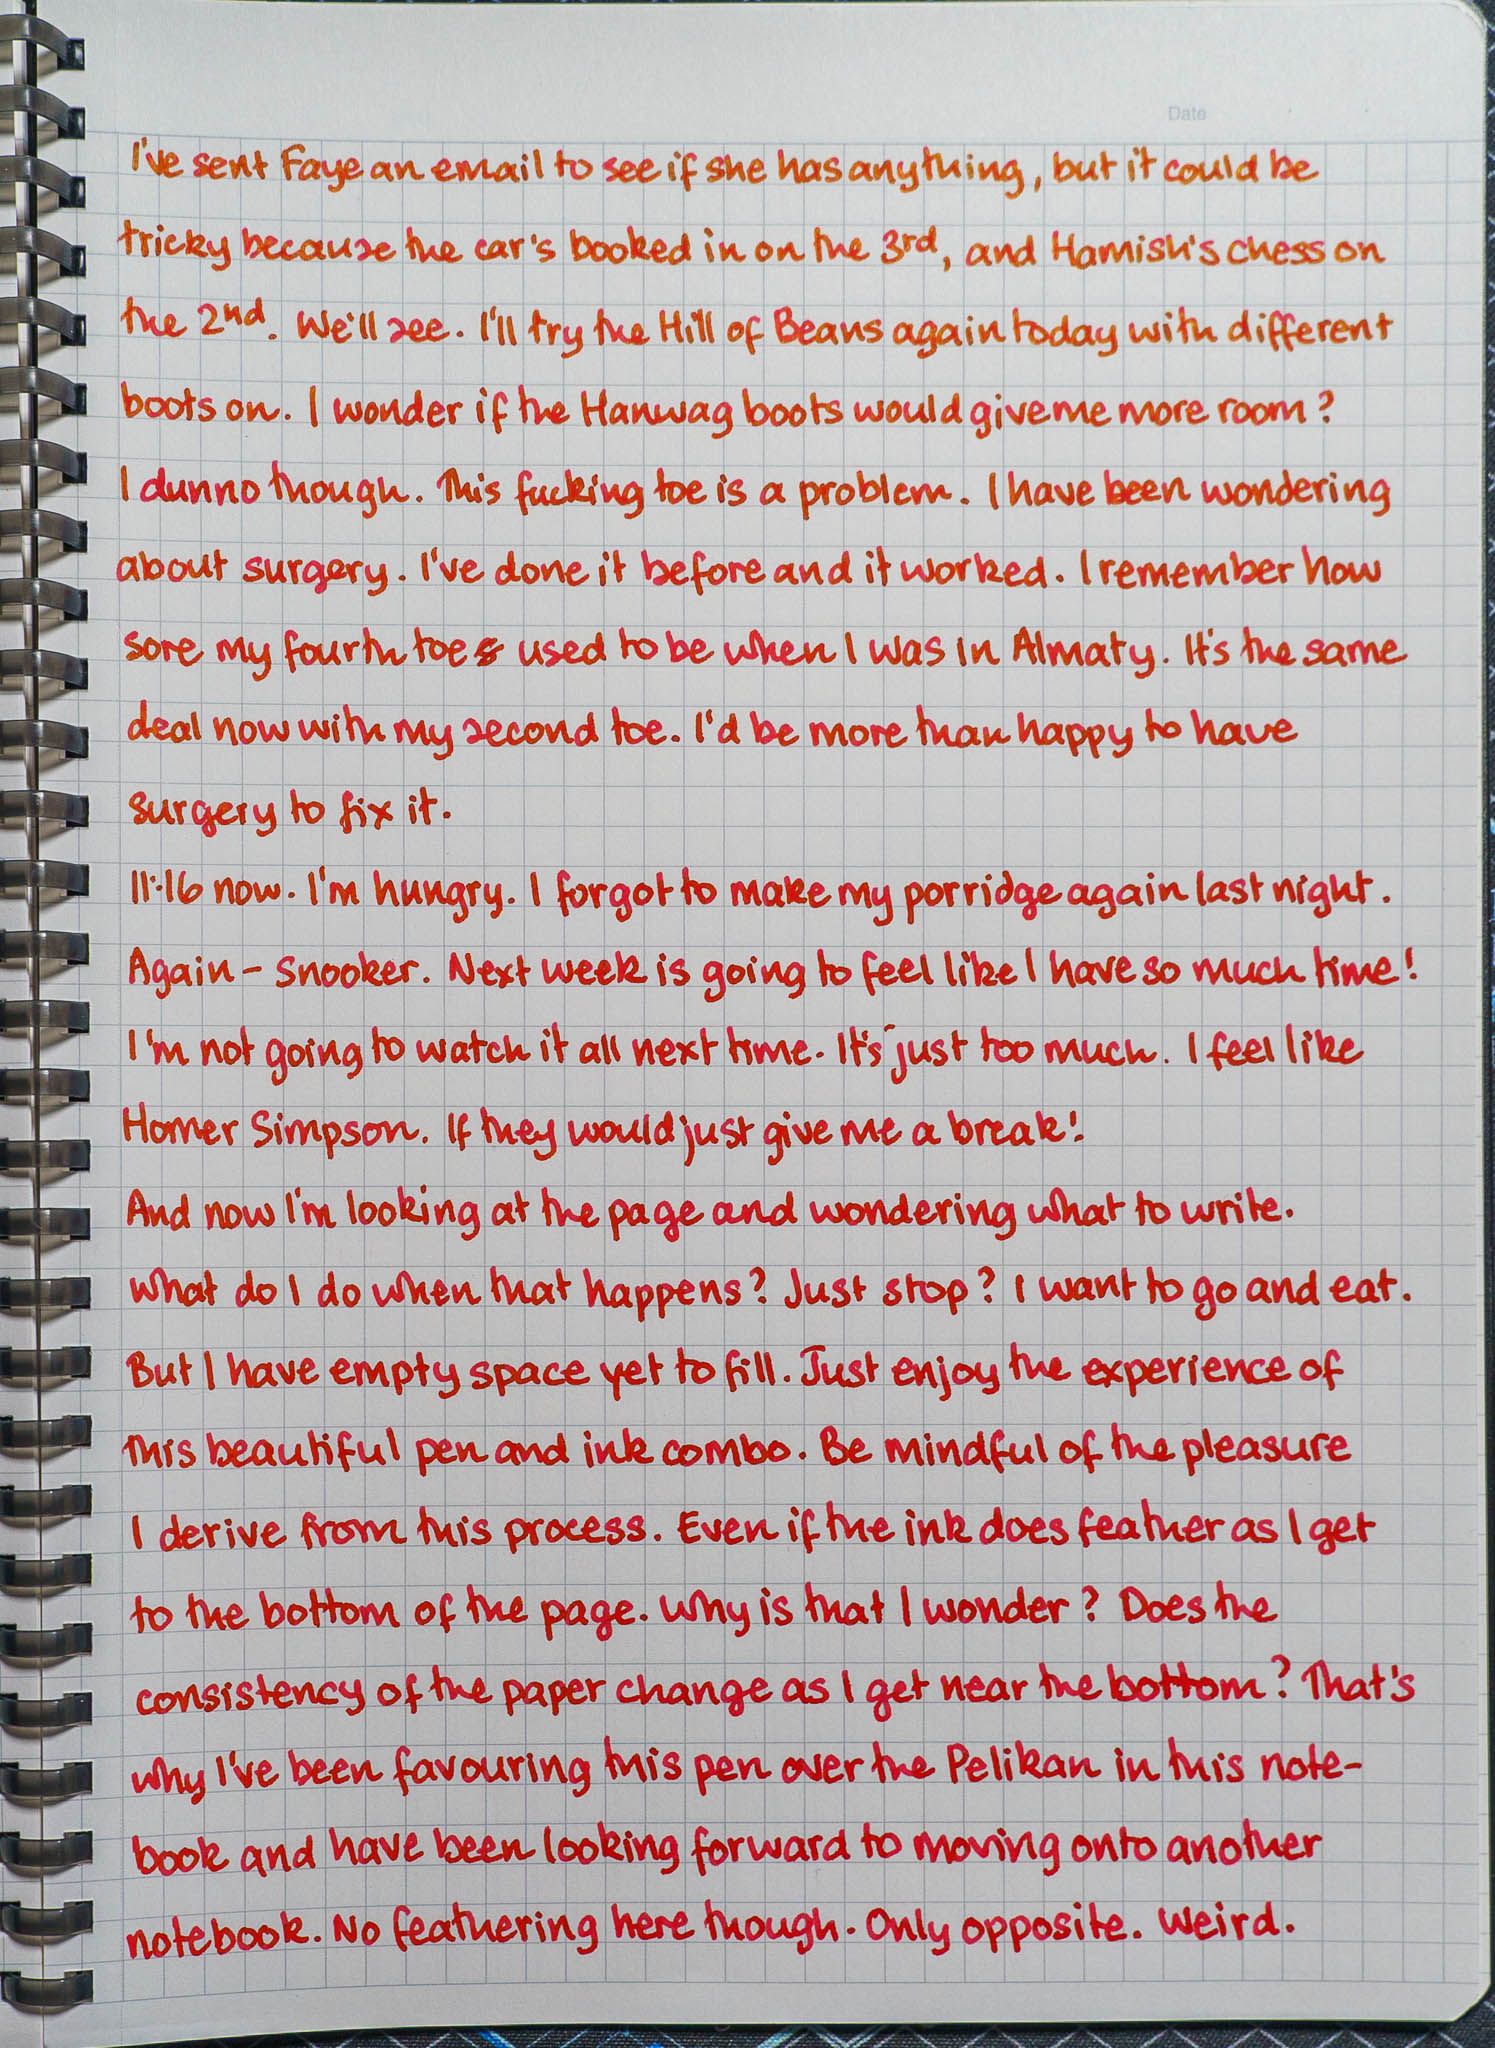 Date
I've sent Faye an email to see if she has anything, but it could be
tricky because the car's booked in on the 3rd, and Hamish's chess on
the 2nd. We'll see. I'll try the Hill of Beans again today with different
boots on. I wonder if the Hanwag boots would give me more room?
I dunno though. This fucking toe is a problem. I have been wondering
about surgery. I've done it before and it worked. I remember how
sore my fourth toes used to be when I was in Almaty. It's the same
deal now with my second toe. I'd be more than happy to have
surgery to fix it.
11:16 now. I'm hungry. I forgot to make my porridge again last night.
Again - Snooker. Next week is going to feel like I have so much time!
I'm not going to watch it all next time. It's just too much. I feel like
Homer Simpson. If they would just give me a break!
And now I'm looking at the page and wondering what to write.
What do I do when that happens? Just stop? I want to go and eat.
But I have empty space yet to fill. Just enjoy the experience of
this beautiful pen and ink combo. Be mindful of the pleasure
I derive from this process. Even if the ink does feather as I get
to the bottom of the page. Why is that I wonder? Does the
consistency of the paper change as I get near the bottom? That's
why I've been favouring this pen over the Pelikan in this note-
book and have been looking forward to moving onto another
notebook. No feathering here though. Only opposite. Weird.